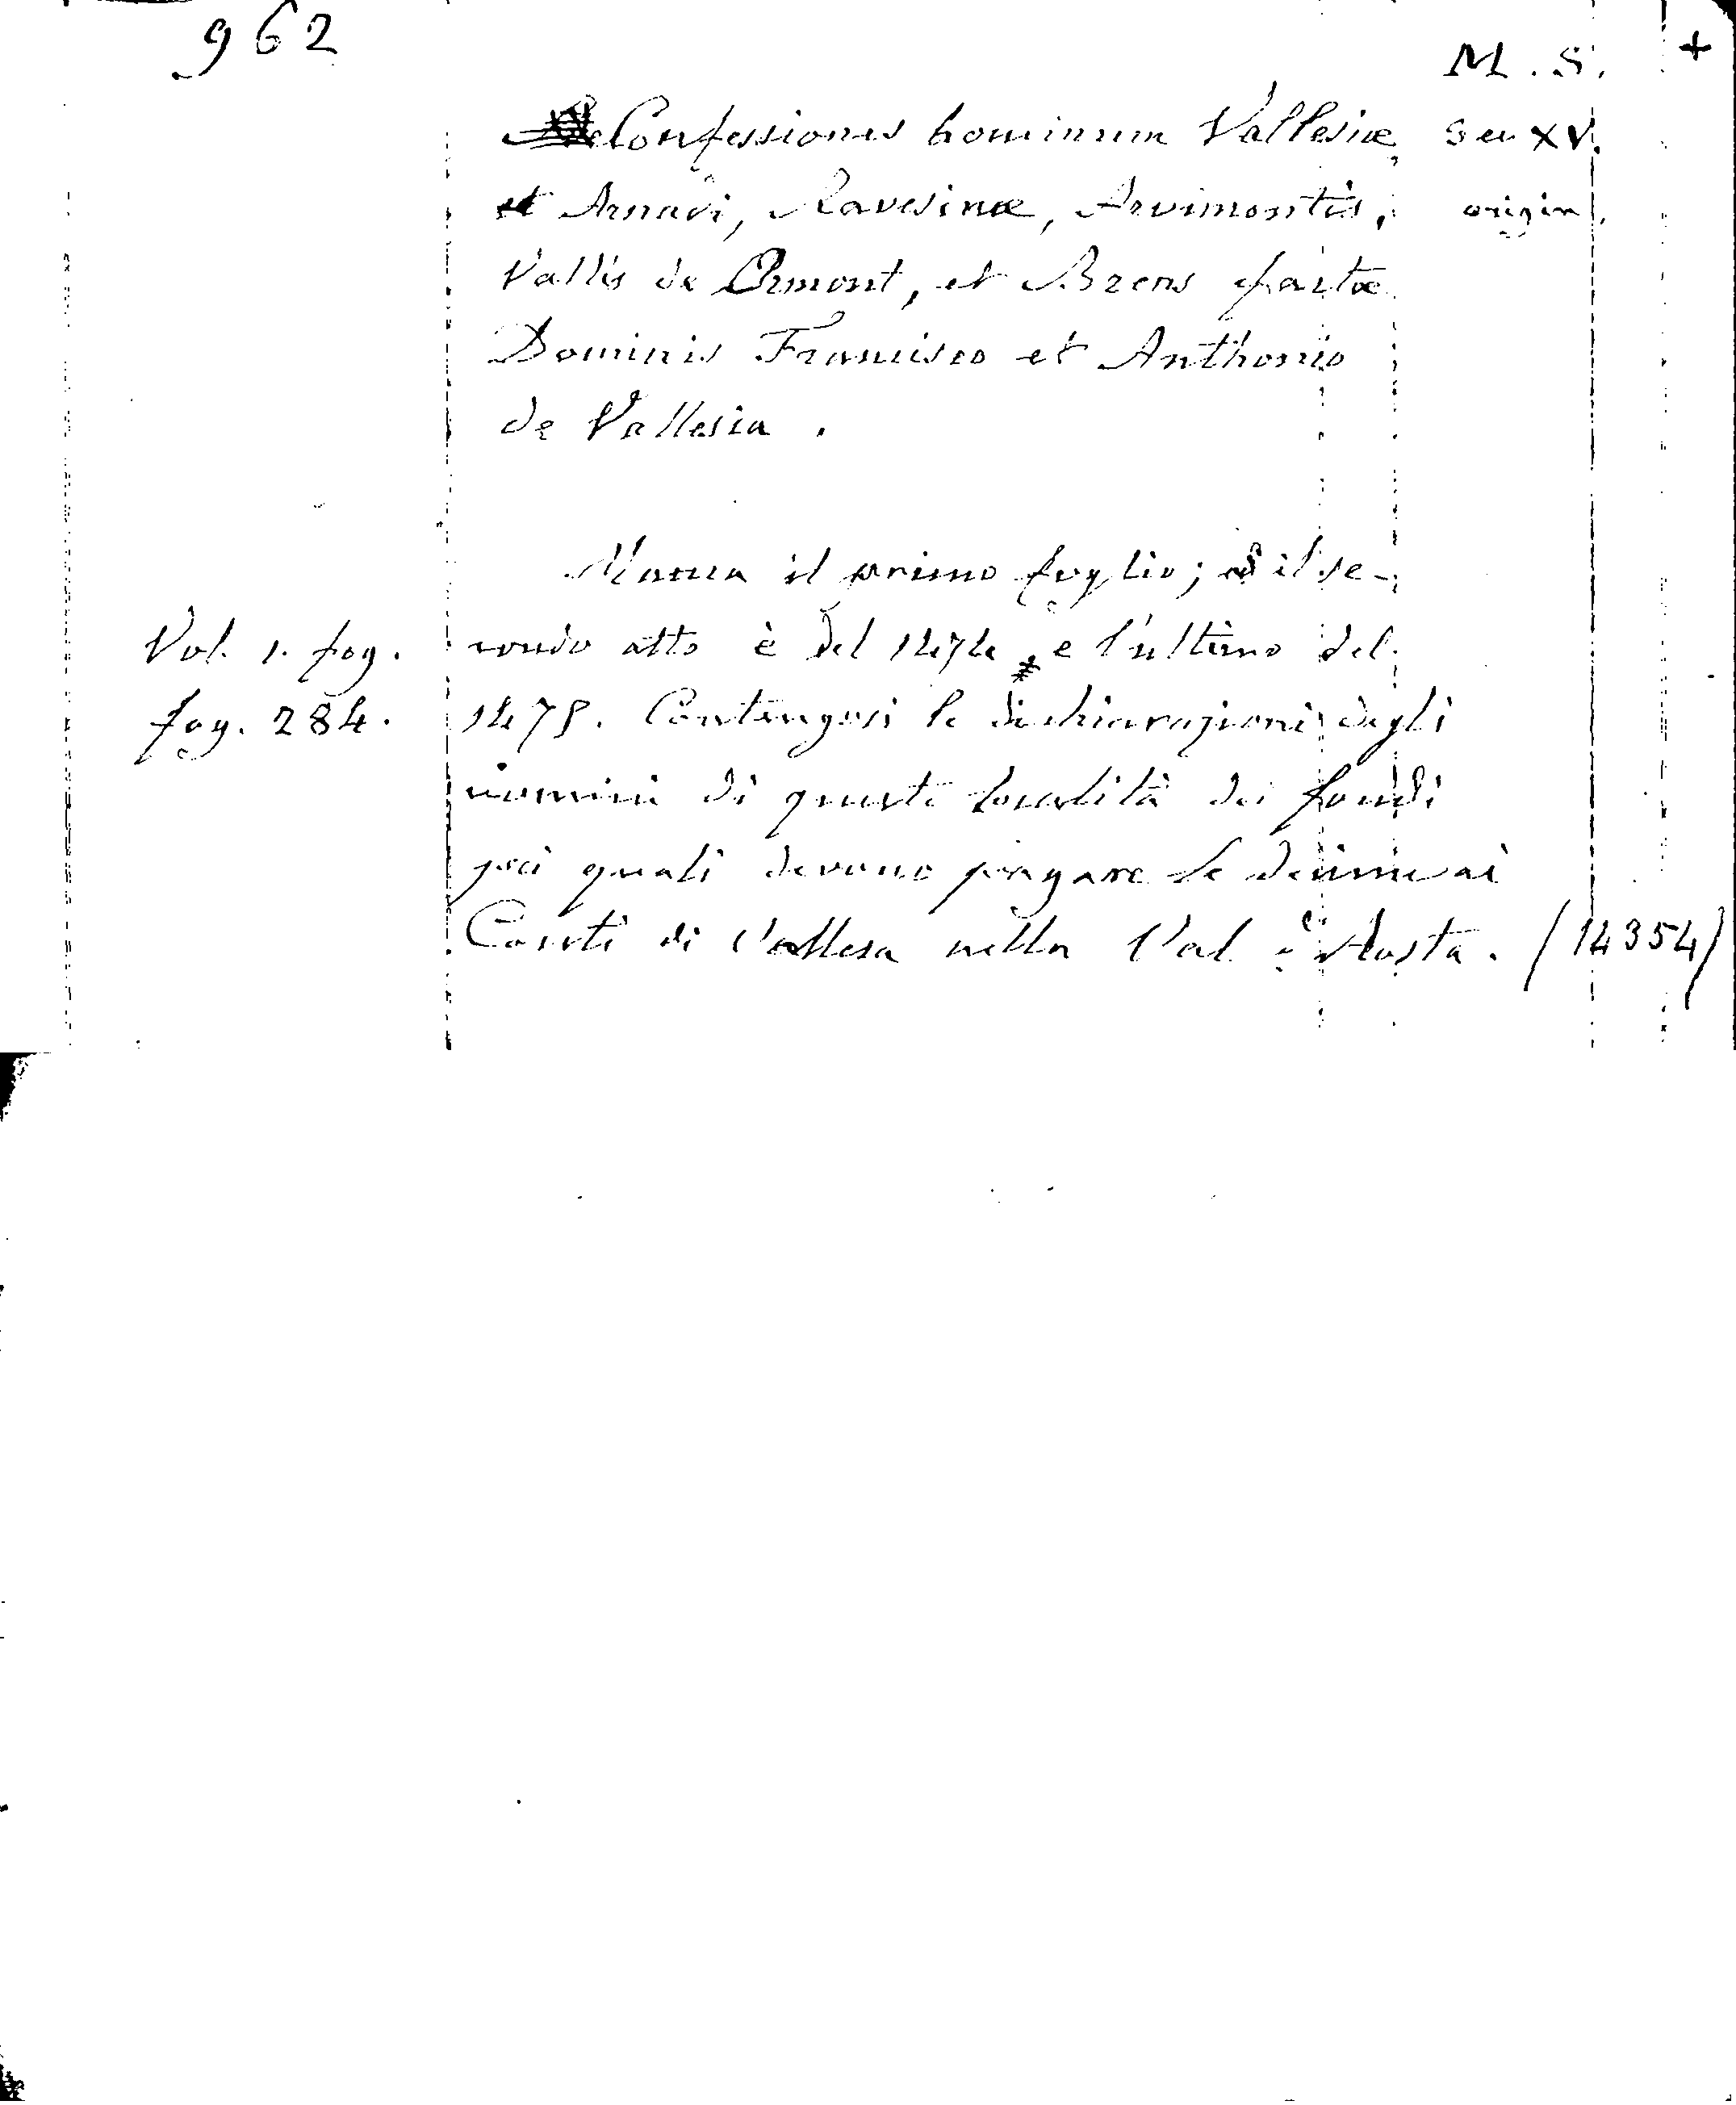 962
M. S. +
Confessiones hominum Vallesiæ, Sec XV.
et Arnadi, Ravesinæ, Arvimontis, origin.
Vallis de Ormont, et Brens factæ
Dominis Francisco et Anthonio
de Vallesia.
Manca il primo foglio; il se-
condo atto è del 1474 e l'ultimo del
Vol. 1. fog.
fog. 284.
1475. Contengosi le dichiarazioni degli
uomini di queste località dei fondi
pei quali devono pagare le decime ai
Conti di Vallesa nella Val d'Aosta. (14354)